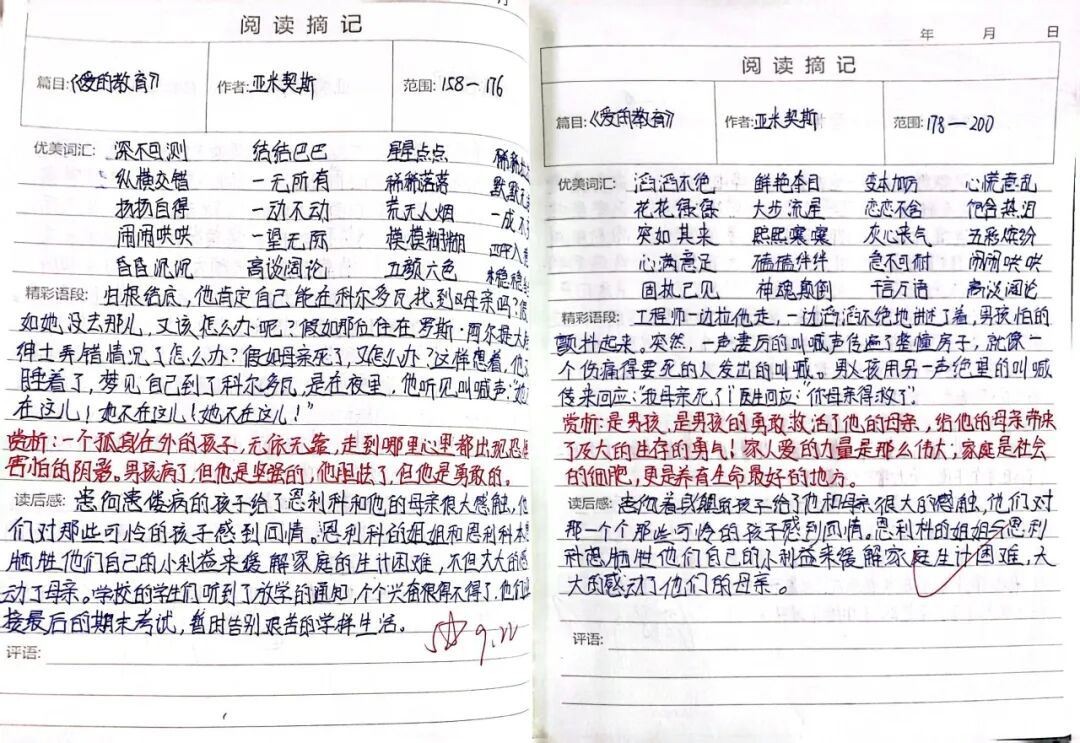 月
阅读摘记
篇目:《爱的教育》 作者:亚米契斯 范围:158—176
优美词汇: 深不可测 结结巴巴 星星点点
纵横交错 一无所有 稀稀落落 默默无
扬扬自得 一动不动 荒无人烟 一成不
闹闹哄哄 一望无际 模模糊糊
昏昏沉沉 高谈阔论 五颜六色
精彩语段: 归根结底,他肯定自己能在科尔多瓦找到母亲吗?假
如她没去那儿,又该怎么办呢?假如那位住在罗斯·阿尔提大
绅士弄错情况了怎么办?假如母亲死了,又怎么办?这样想着,他
睡着了,梦见自己到了科尔多瓦,是在夜里,他听见叫喊声:"她
在这儿!她不在这儿!她不在这儿!"
赏析:一个孤身在外的孩子,无依无靠,走到哪里心里都出现恐
害怕的阴影。男孩病了,但他是坚强的,他胆怯了,但他是勇敢的。
读后感: 患佝偻病的孩子给了恩利科和他的母亲很大感触,他
们对那些可怜的孩子感到同情。恩利科的姐姐和恩利科
牺牲他们自己的小利益来缓解家庭的生计困难,不但大大的感
动了母亲。学校的学生们听到了放学的通知,个个兴奋得不得了,他们
接最后的期末考试,暂时告别艰苦的学样生活。
9.22
评语:
年 月 日
阅读摘记
篇目:《爱的教育》 作者:亚米契斯 范围:178—200
优美词汇: 滔滔不绝 鲜艳夺目 变本加厉 心慌意乱
花花绿绿 大步流星 恋恋不舍 饱含热泪
突如其来 熙熙攘攘 灰心丧气 五彩缤纷
心满意足 磕磕绊绊 急不可耐 闹闹哄哄
固执己见 神魂颠倒 千言万语 高谈阔论
精彩语段: 工程师一边拉他走,一边滔滔不绝地讲述了着,男孩怕的
颤抖起来。突然,一声凄厉的叫喊声传遍了整幢房子,就像一
个伤痛得要死的人发出的叫喊。男孩用另一声绝望的叫喊
传来回应:"我母亲死了!"医生回应:"你母亲得救了"。
赏析:是男孩,是男孩的勇敢救活了他的母亲,给他的母亲带来
了及大的生存的勇气!家人爱的力量是那么伟大,家庭是社会
的细胞,更是养育生命最好的地方。
读后感: 的孩子给了他和母亲很大的感触,他们对
那一个个那些可怜的孩子感到同情。恩利科的姐姐今恩利
科愿牺牲他们自己的小利益来缓解家庭生计困难,大
大的感动了他们的母亲。
评语: